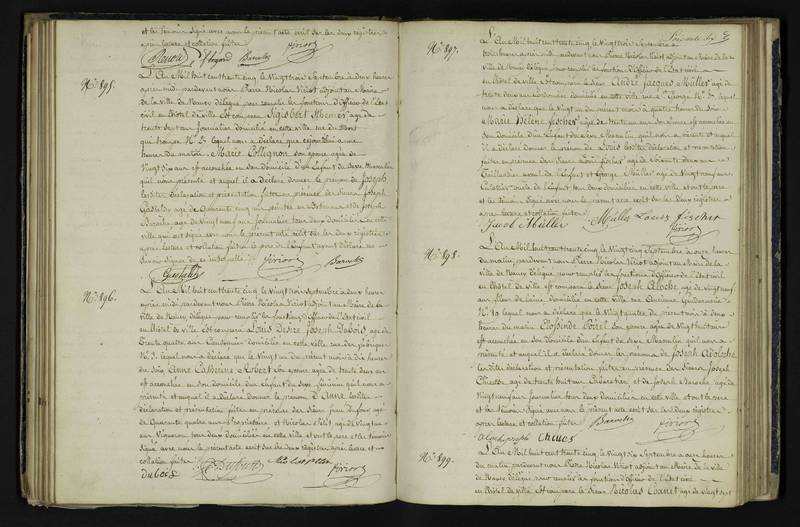 et les témoins signé avec nous le présent acte écrit sur les deux registres
après lecture et collation faites
N.° 895.
L'An Mil huit cent trente cinq le Vingt trois Septembre à deux heures
après midi pardevant nous Pierre Nicolas Viriot adjoint au Maire
de la ville de Nancy délégué pour remplir les fonctions d'Officier de l'Etat
civil en l'hôtel de Ville est comparu Sigisbert Thomas âgé de
trente sept ans Journalier domicilié en cette ville rue du Pont
N.° lequel nous a déclaré que cejourd'hui à une
heure du matin Marie Collignon son épouse âgée de
Vingt six ans est accouchée en son domicile d'un Enfant du sexe Masculin
qu'il nous présente et auquel il a déclaré donner le prénom de Joseph
lesdites déclaration et présentation faites en présence des Sieurs Joseph
âgé de Quarante cinq ans et de Joseph
Barache âgé de Vingt neuf ans Journalier tous deux domiciliés en cette
ville qui ont signé avec nous le présent acte écrit sur les deux registres
après lecture et collation faites le père de l'Enfant ayant déclaré ne
savoir signer de ce interpellé
Viriot
N.° 896.
L'An Mil huit cent trente cinq le Vingt trois Septembre à deux heures
après midi pardevant nous Pierre Nicolas Viriot adjoint au Maire de la
ville de Nancy délégué pour remplir les fonctions d'Officier de l'Etat civil
en l'hôtel de Ville est comparu Louis Désiré Joseph Dubois âgé de
Trente quatre ans domicilié en cette ville rue des fabriques
N.° lequel nous a déclaré que le Vingt un du présent mois à dix heures
du soir Anne Catherine Robert son épouse âgée de trente deux ans
est accouchée en son domicile d'un Enfant du sexe féminin qu'il nous a
présenté et auquel il a déclaré donner le prénom d'Anne lesdites
déclaration et présentation faites en présence des Sieurs âgé
de Quarante quatre ans Propriétaire et Nicolas âgé de Vingt six
ans Vigneron tous deux domiciliés en cette ville et ont le père et les témoins
signé avec nous le présent acte écrit sur les deux registres après lecture et
collation faites
Dubois Viriot
N.° 897.
L'An Mil huit cent trente cinq le Vingt trois Septembre à
heures après midi pardevant nous Pierre Nicolas Viriot adjoint au Maire de la
ville de Nancy délégué pour remplir les fonctions d'Officier de l'Etat civil
en l'hôtel de Ville est comparu le Sieur André Jacques Müller âgé de
trente deux ans domicilié en cette ville rue St George N.° lequel
nous a déclaré que le Vingt un du présent mois à quatre heures du soir
Marie Hélène fischer âgée de trente un ans son épouse est accouchée en
son domicile d'un Enfant du sexe Masculin qu'il nous a présenté et auquel
il a déclaré donner le prénom de Louis lesdites déclaration et présentation
faites en présence des Sieurs Louis fischer âgé de soixante deux ans
aïeul de l'Enfant et George Müller âgé de Vingt neuf ans
oncle de l'Enfant tous deux domiciliés en cette ville et ont le père
et les témoins signé avec nous le présent acte écrit sur les deux registres
après lecture et collation faites
Jacob Müller Müller Louis Fischer
Viriot
N.° 898.
L'An Mil huit cent trente cinq le Vingt cinq Septembre à onze heures
du matin pardevant nous Pierre Nicolas Viriot adjoint au Maire de la
ville de Nancy délégué pour remplir les fonctions d'Officier de l'Etat civil
en l'hôtel de ville est comparu le Sieur Joseph Aloche âgé de Vingt neuf
ans domicilié en cette ville rue
N.° 19 lequel nous a déclaré que le Vingt quatre du présent mois à deux
heures du matin son épouse âgée de Vingt huit ans
est accouchée en son domicile d'un Enfant du sexe Masculin qu'il nous a
présenté et auquel il a déclaré donner les prénoms de Joseph Adolphe
lesdites déclaration et présentation faites en présence des Sieurs Joseph
âgé de trente huit ans et de Joseph Barache âgé de
Vingt neuf ans Journalier tous deux domiciliés en cette ville et ont le père
et les témoins signé avec nous le présent acte écrit sur les deux registres
après lecture et collation faites
Viriot
N.° 899.
L'An Mil huit cent trente cinq le Vingt six Septembre à onze heures
du matin pardevant nous Pierre Nicolas Viriot adjoint au Maire de la ville
de Nancy délégué pour remplir les fonctions d'Officier de l'Etat civil
en l'hôtel de ville est comparu le Sieur Nicolas âgé de Vingt sept